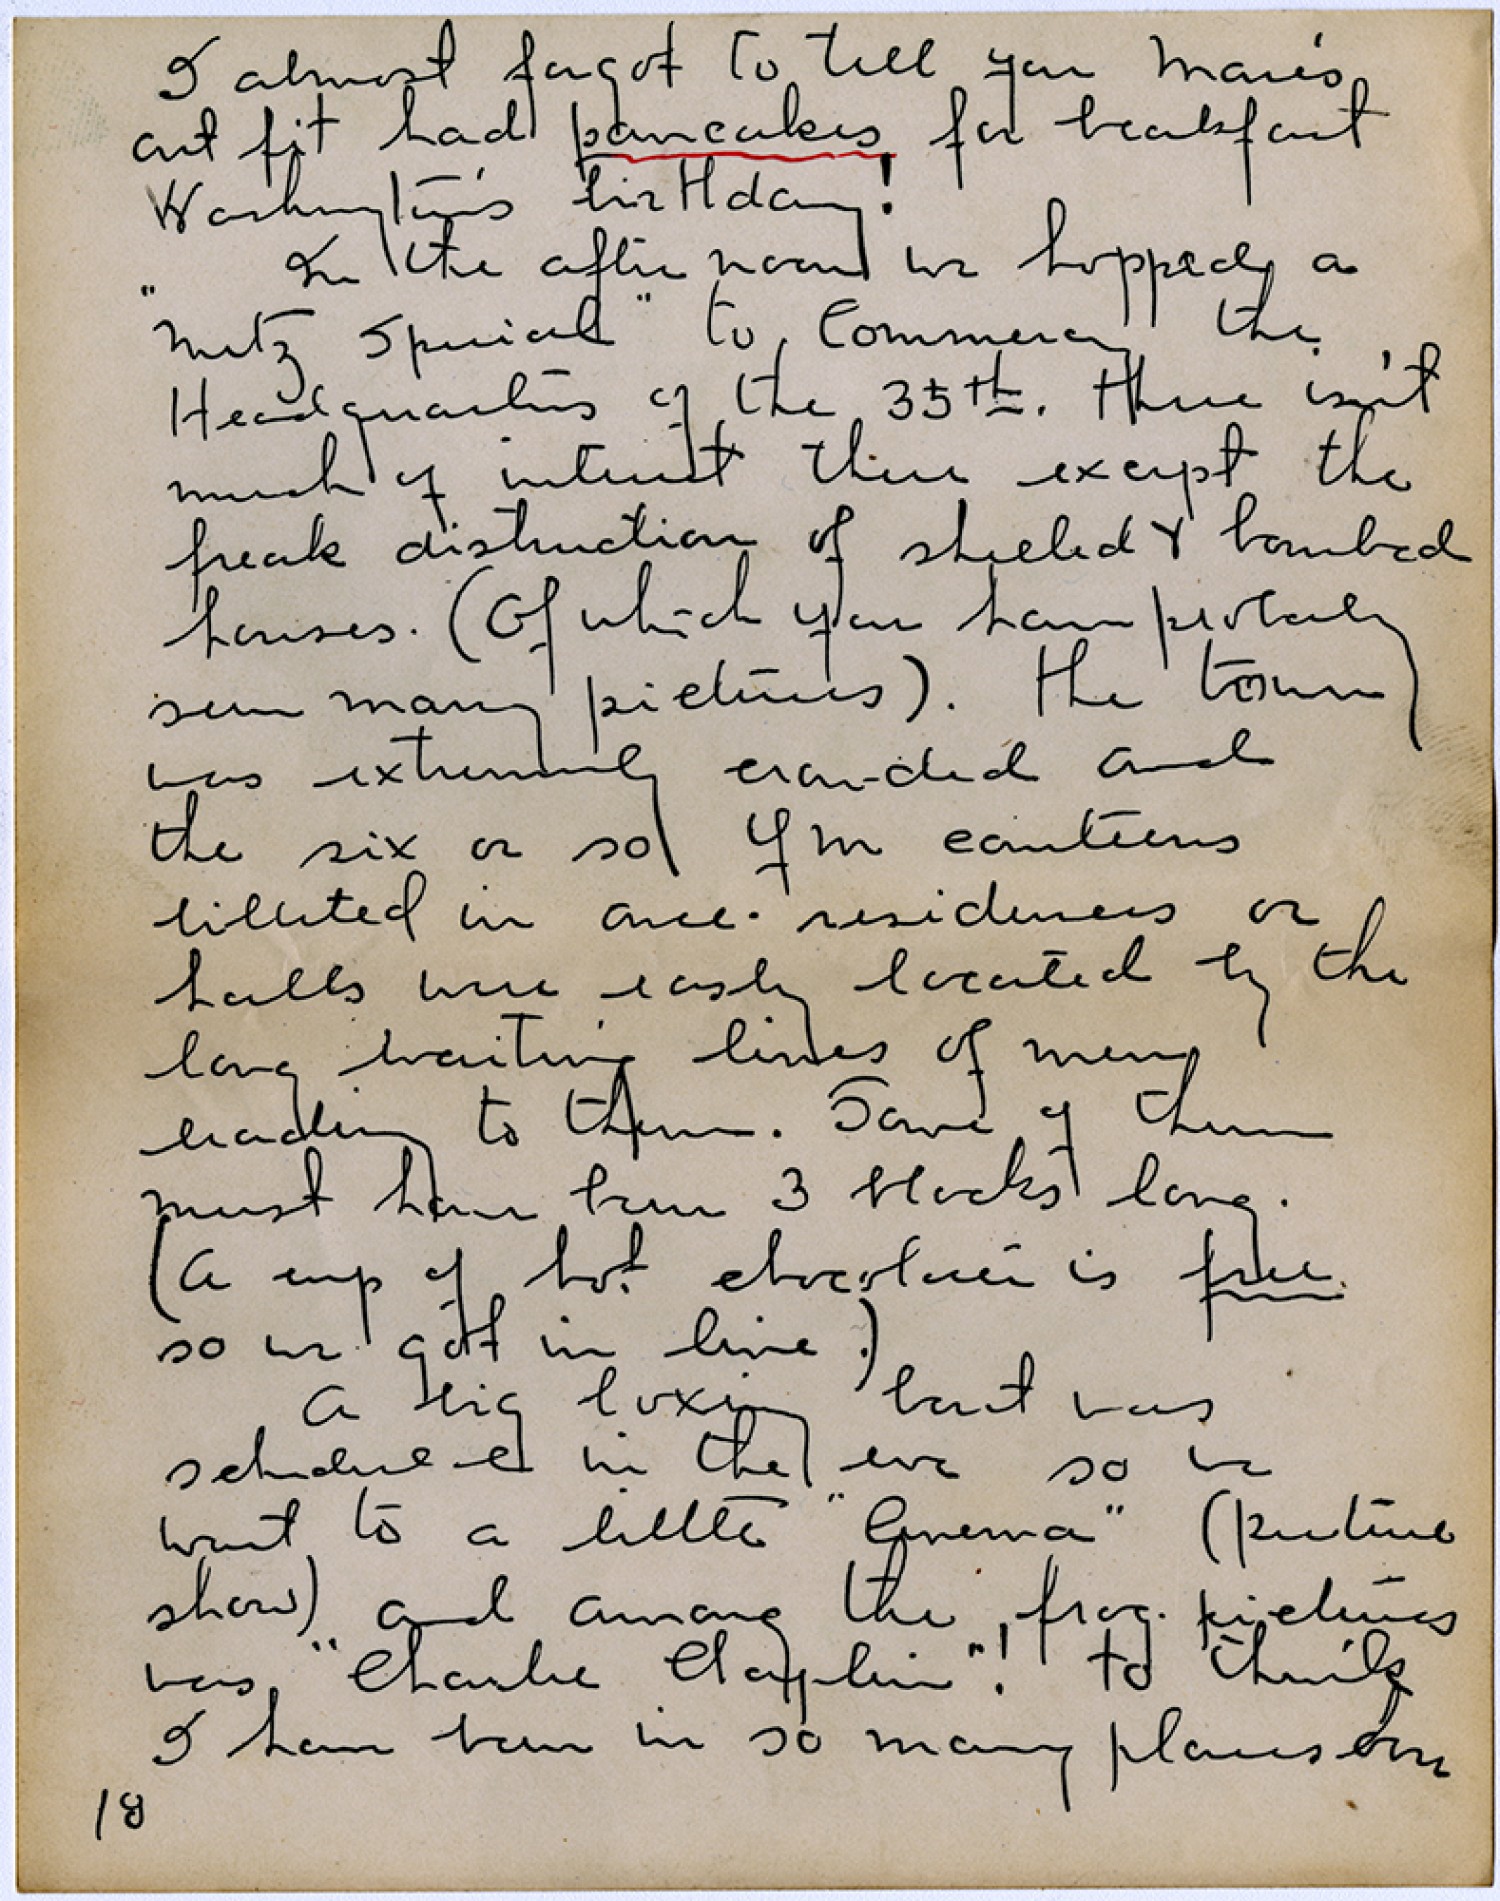 I almost forgot to tell you Marie's
out fit had pancakes for breakfast
Washington's birthday!
In the after noon we hopped a
"Metz Special" to Commercy the
Headquarters of the 35th. There isn't
much of interest there except the
freak distruction of shelled & bombed
houses. (Of which you have probably
seen many pictures). The town
was extremely crowded and
the six or so Ym canteens
billeted in once residences or
halls were easly located by the
long waiting lines of men
leading to them. Some of them
must have been 3 blocks long.
(A cup of hot chocolate is free
so we got in line.)
A big boxing bout was
scheduled in the eve so we
went to a little "Cinema" (picture
show) and among the frog. pictures
was "Charlie Chaplin"! To think
I have been in so many places over
18